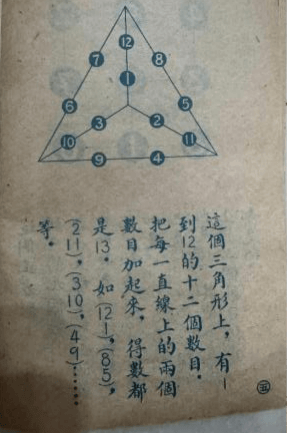 12
7
8
1
6
5
3
2
10
11
9
4
這個三角形上，有1
到12的十二個數目。
把每一直線上的兩個
數目加起來，得數都
是13。如(12 1)，(8 5)，
(2 11)，(3 10)，(4 9)……
等。
五